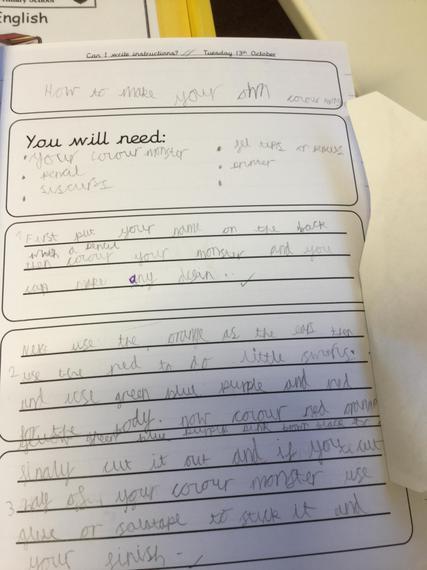 English
Can I write instructions? Tuesday 13th October
How to make your own colour
You will need:
your colour monster
pencil
siscurs
1 First put your name on the back
with a pencil
then colour your monster and you
can make any
Next use the orange as the ears then
2 use the red to do little
and use green blue purple and red
for the body. now colour red
green blue purple pink brown black
finaly cut it out and if you cut
3 off your colour monster use
glue or salatape to stick it and
your finish